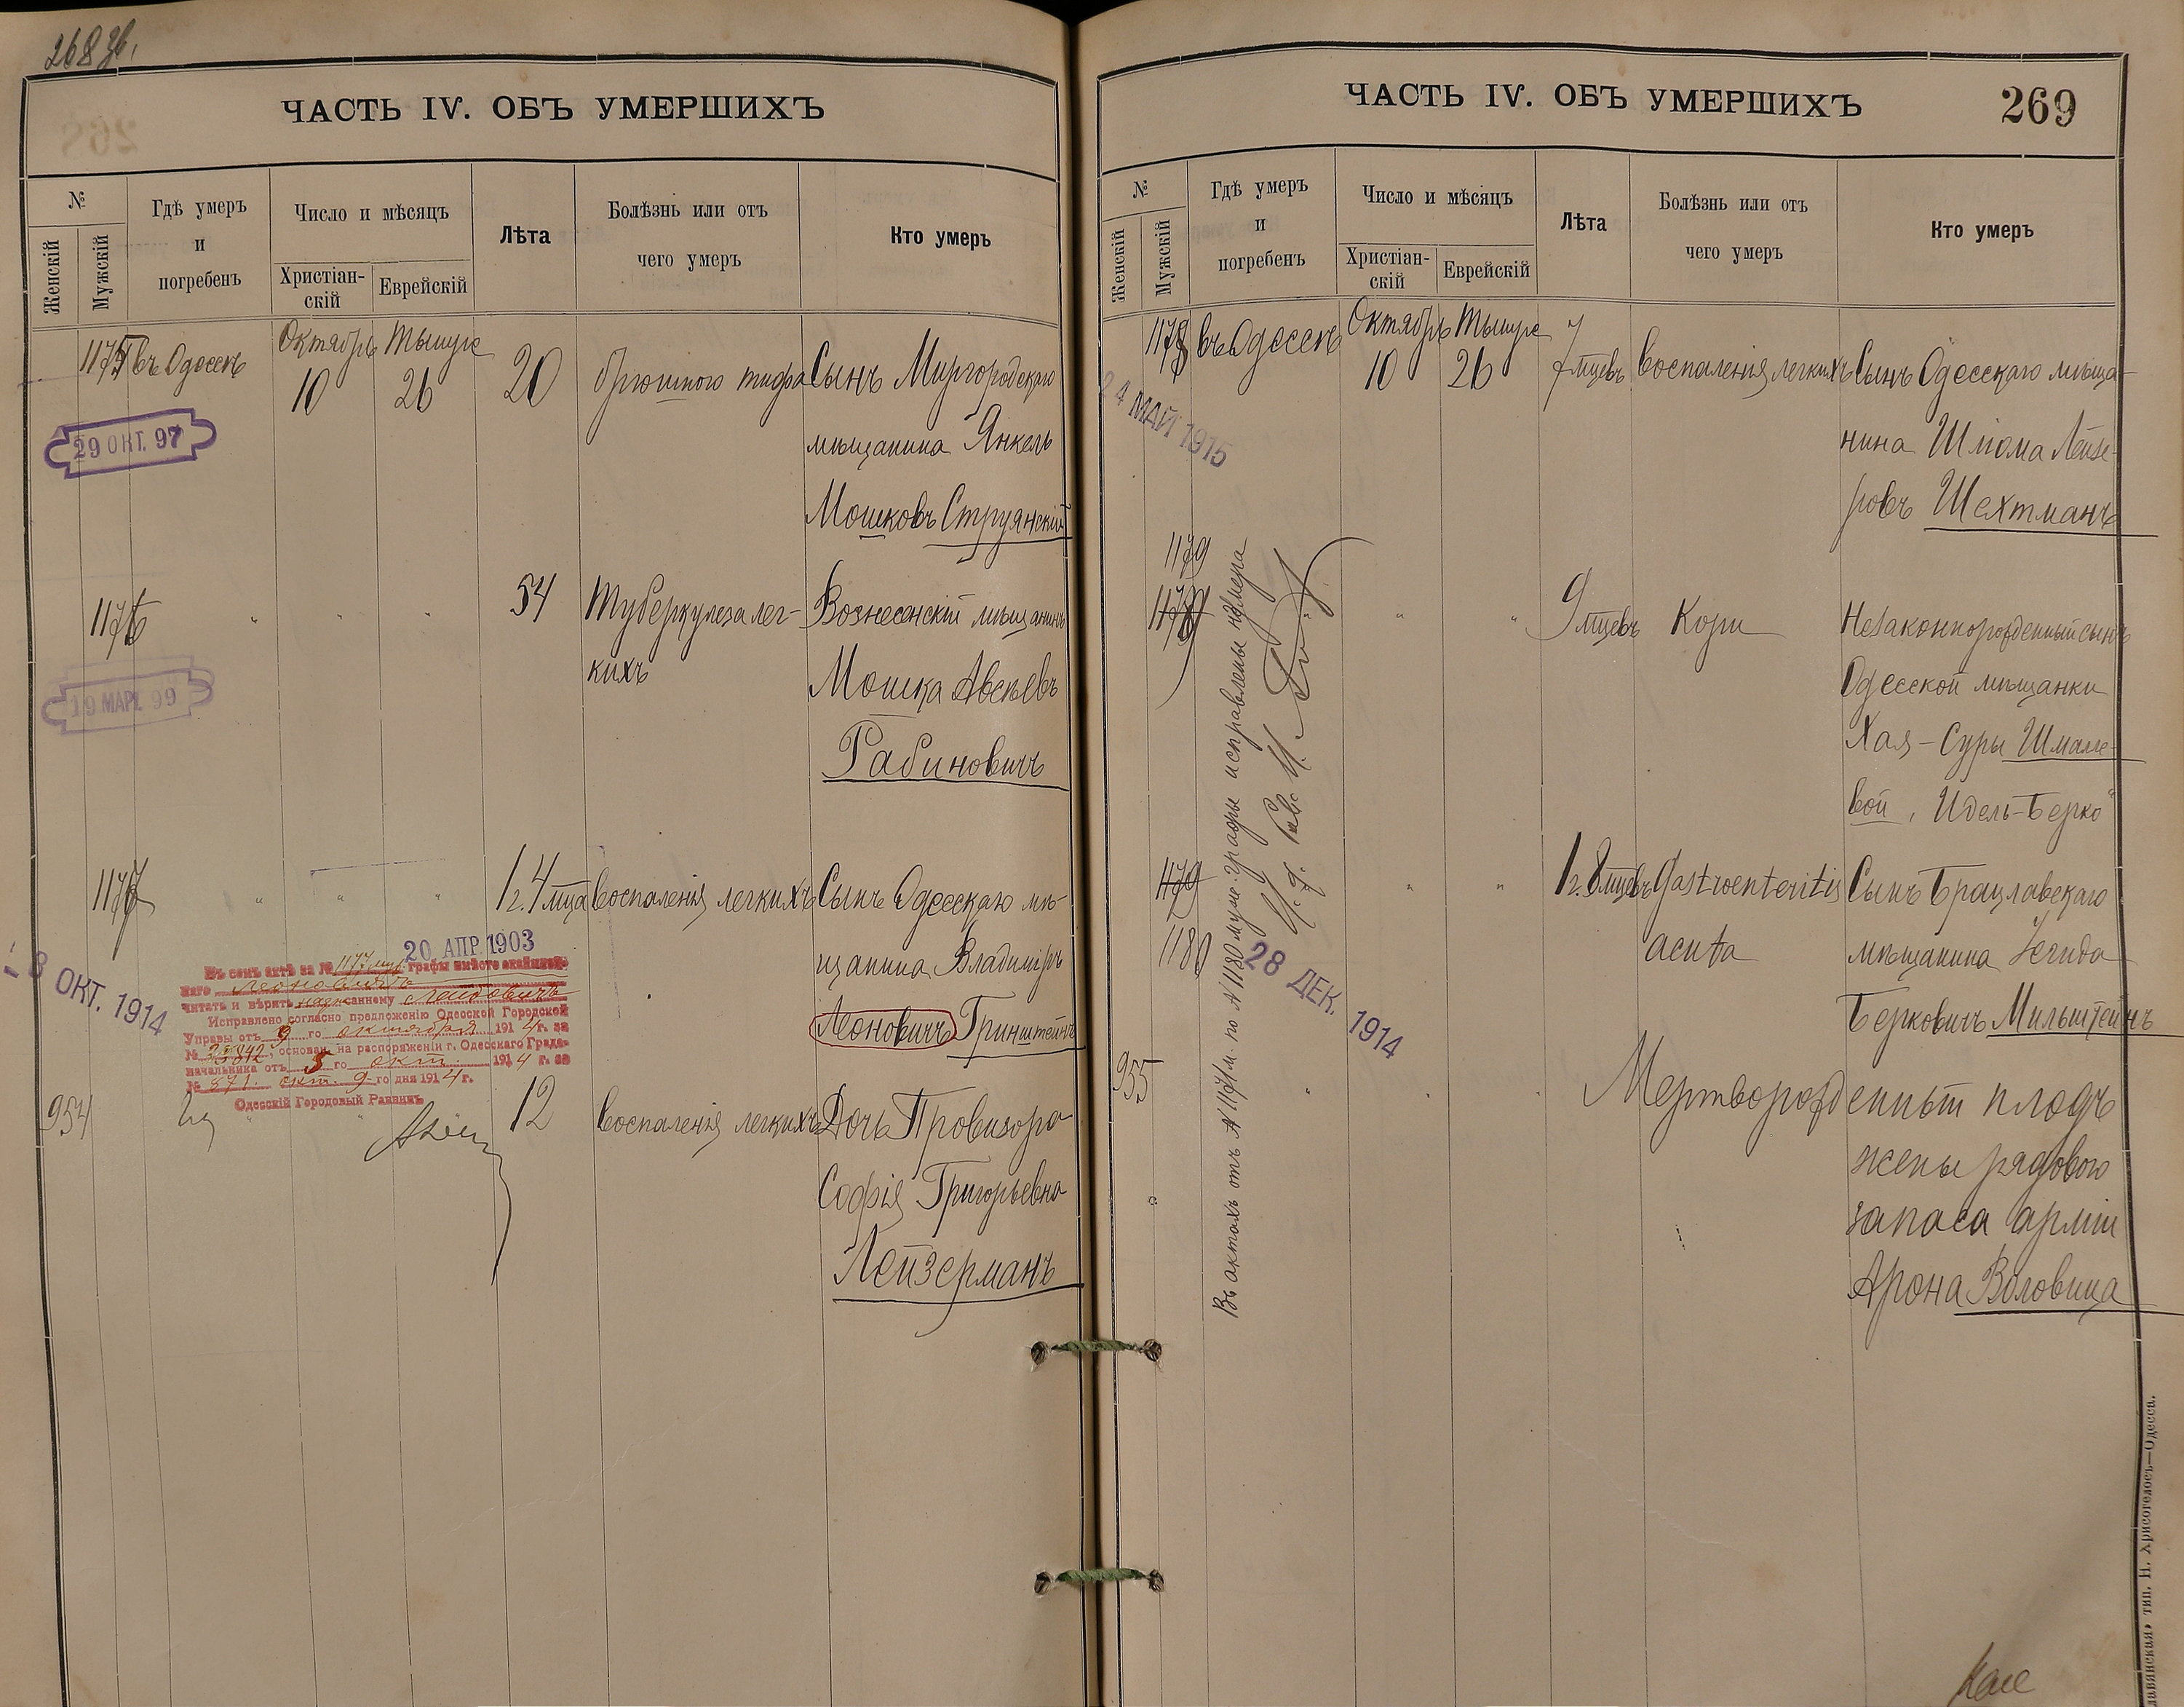 268 Зв.
ЧАСТЬ IV. ОБЪ УМЕРШИХЪ
№
Женскій
Мужскій
Гдѣ умеръ
и
погребенъ
Число и мѣсяцъ
Христіан-
скій
Еврейскій
Лѣта
Болѣзнь или отъ
чего умеръ
Кто умеръ
1175 въ Одессѣ Октябрь 10 26 20 брюшного тифа Сынъ Миргородскаго
мѣщанина Янкель
Мошковъ Струянскій
29 ОКТ. 97
1176 " " " 54 Туберкулеза лег- Вознесенскій мѣщанинъ
кихъ Мошка Авсѣевъ
Рабиновичъ
19 МАР. 99
1177 " " " 1 г. 4 мца воспаленія легкихъ Сынъ Одесскаго мѣ-
щанина Владиміръ
Леоновичъ Гринштейнъ
20 АПР. 1903
- 8 ОКТ. 1914
Въ семъ актѣ за № 1177 муж. графы вмѣсто
Леоновичъ
читать и вѣрить
Исправлено согласно предложенію Одесской Городской
Управы отъ 9 го октября 1914 г. за
№ основан. на распоряженіи г. Одесскаго Градо-
начальника отъ 5 го окт. 1914 г. за
№ 571. окт. 9-го дня 1914 г.
Одесскій Городовый Раввинъ
954 12 воспаленія легкихъ Дочь Провизора
Софія Григорьевна
Лейзерманъ
ЧАСТЬ IV. ОБЪ УМЕРШИХЪ
269
№
Женскій
Мужскій
Гдѣ умеръ
и
погребенъ
Число и мѣсяцъ
Христіан-
скій
Еврейскій
Лѣта
Болѣзнь или отъ
чего умеръ
Кто умеръ
1178 въ Одессѣ Октябрь 10 26 7 мцевъ воспаленія легкихъ Сынъ Одесскаго мѣща-
нина Шлома Лейзе-
ровъ Шехтманъ
24 МАЙ 1915
1179
" " 9 мцевъ Кори Незаконнорожденный сынъ
Одесской мѣщанки
Хая-Суры Шмале-
вой, Идель-Берко
1179 " " 1 г. 8 мцевъ Gastroenteritis Сынъ Брацлавскаго
1180 acuta мѣщанина
Берковичъ Мильштейнъ
28 ДЕК. 1914
Въ актахъ отъ № по № 1180 муж. графы исправлены номера
955 " " " Мертворожденный плодъ
жены рядового
запаса арміи
Арона Воловица
тип. Н. Хрисогелосъ—Одесса.